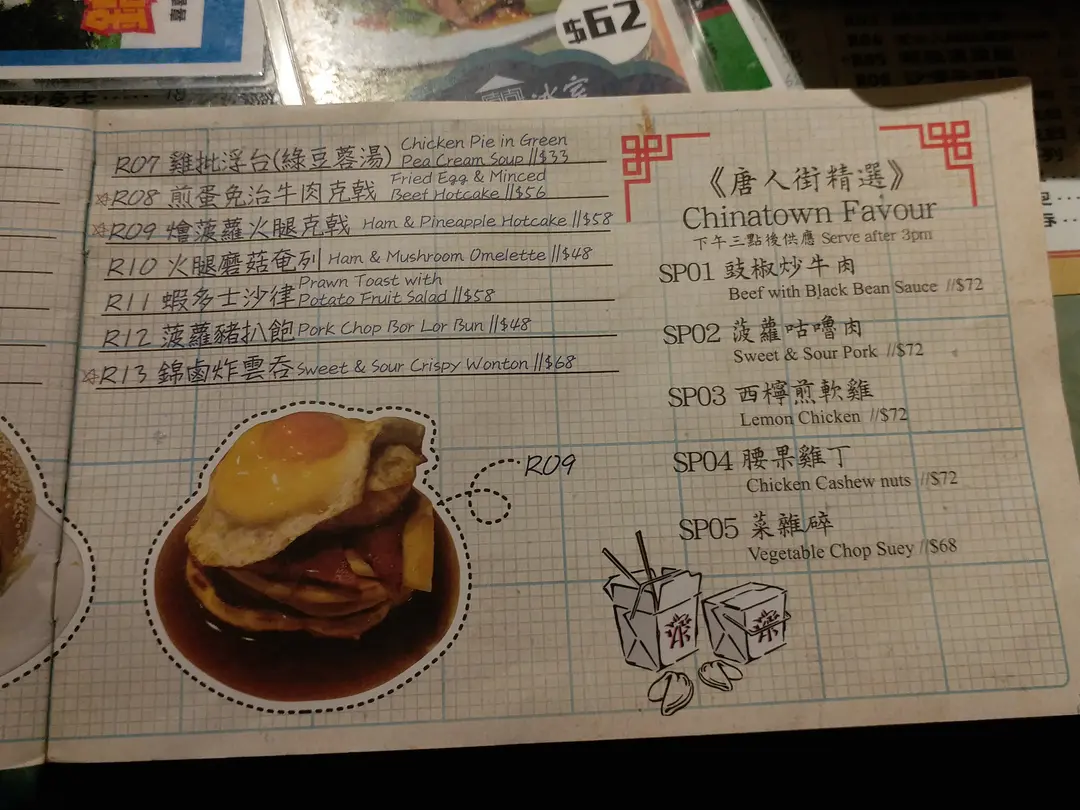 $62
冰室
R07 雞批浮台(綠豆蓉湯) Chicken Pie in Green
Pea Cream Soup //$33
R08 煎蛋免治牛肉克戟 Fried Egg & Minced
Beef Hotcake //$56
R09 燴菠蘿火腿克戟 Ham & Pineapple Hotcake //$58
R10 火腿磨菇奄列 Ham & Mushroom Omelette //$48
R11 蝦多士沙律 Prawn Toast with
Potato Fruit Salad //$58
R12 菠蘿豬扒飽 Pork Chop Bor Lor Bun //$48
R13 錦鹵炸雲吞 Sweet & Sour Crispy Wonton //$68
R09
《唐人街精選》
Chinatown Favour
下午三點後供應 Serve after 3pm
SP01 豉椒炒牛肉
Beef with Black Bean Sauce //$72
SP02 菠蘿咕嚕肉
Sweet & Sour Pork //$72
SP03 西檸煎軟雞
Lemon Chicken //$72
SP04 腰果雞丁
Chicken Cashew nuts //$72
SP05 菜雜碎
Vegetable Chop Suey //$68